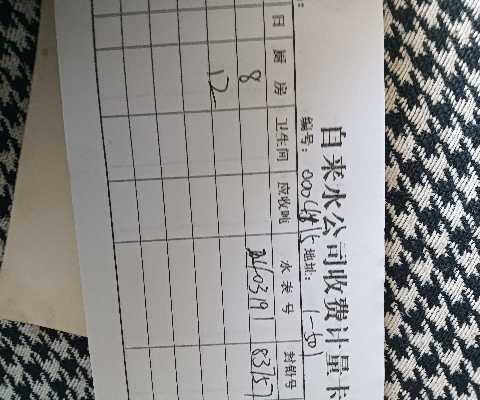 自来水公司收费计量卡
编号: 地址: 1-501
日 厨房 卫生间 应收吨 水表号 封铅号
8 83757
12